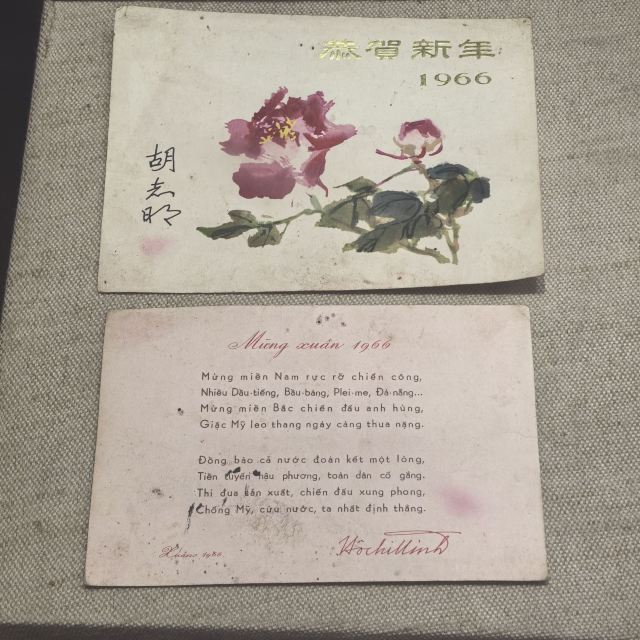 恭賀新年
1966
胡志明
Mừng xuân 1966
Mừng miền Nam rực rỡ chiến công,
Nhiều Dầu-tiếng, Bầu-bàng, Plei-me, Đà-nẵng...
Mừng miền Bắc chiến đấu anh hùng,
Giặc Mỹ leo thang ngày càng thua nặng.
Đồng bào cả nước đoàn kết một lòng,
Tiền tuyến hậu phương, toàn dân cố gắng.
Thi đua sản xuất, chiến đấu xung phong,
Chống Mỹ, cứu nước, ta nhất định thắng.
Xuân 1966
Hồ Chí Minh